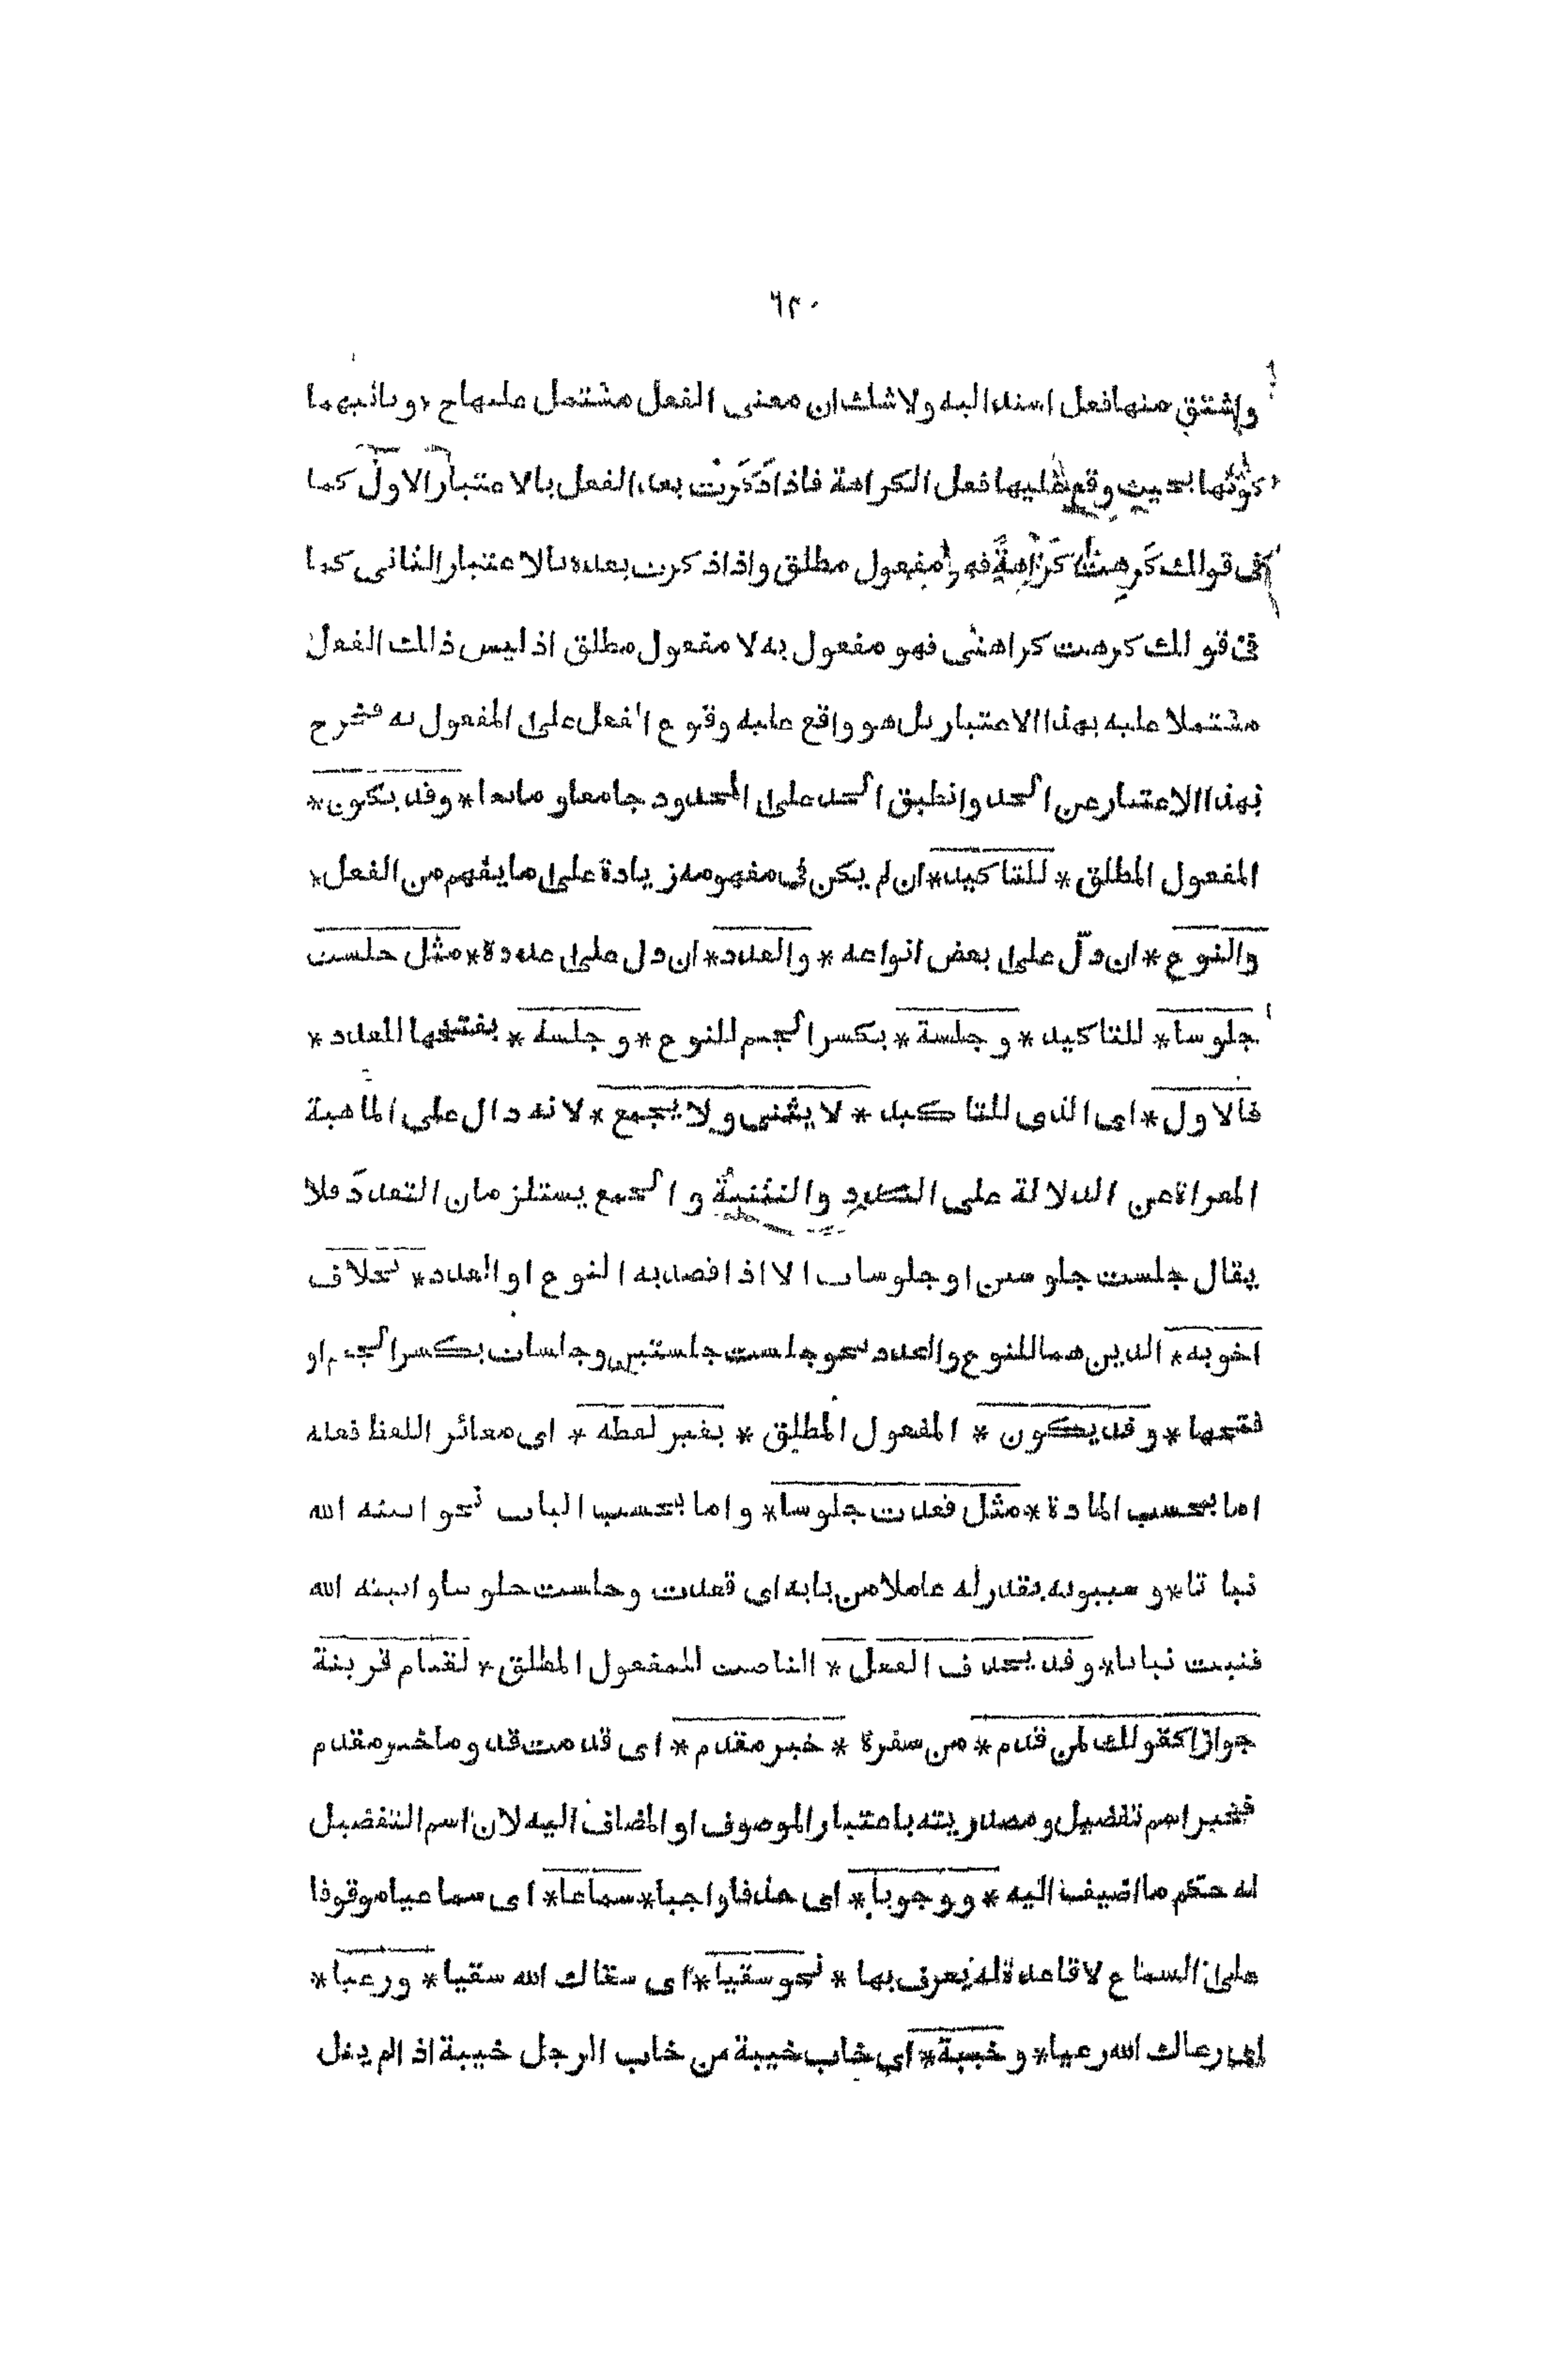 ٦٢٠
واشتق منها فعل اسند اليه ولا شك ان معنى الفعل مشتمل عليها ح * وثانيهما
كونها بحيث وقع عليها فعل الكراهة فاذا ذكرت بعد الفعل بالاعتبار الاول كما
فى قولك كرهت كراهة فهو مفعول مطلق واذا ذكرت بعده بالاعتبار الثانى كما
فى قولك كرهت كراهتى فهو مفعول به لا مفعول مطلق اذ ليس ذلك الفعل
مشتملا عليه بهذا الاعتبار بل هو واقع عليه وقوع الفعل على المفعول به فخرج
بهذا الاعتبار عن الحد وانطبق الحد على المحدود جامعا و مانعا * وقد يكون *
المفعول المطلق * للتاكيد * ان لم يكن فى مفهومه زيادة على ما يفهم من الفعل *
والنوع * ان دلّ على بعض انواعه * والعدد * ان دل على عدده * مثل جلست
جلوسا * للتاكيد * وجلسة * بكسر الجيم للنوع * وجلسة * بفتحها للعدد *
فالاول * اى الذى للتاكيد * لا يثنى ولا يجمع * لانه دال على الماهية
المعراة عن الدلالة على التعدد والتثنية والجمع يستلزمان التعدد فلا
يقال جلست جلوسين او جلوسات الا اذا قصد به النوع او العدد * بخلاف
اخويه * الذين هما للنوع والعدد نحو جلست جلستين وجلسات بكسر الجيم او
فتحها * وقد يكون * المفعول المطلق * بغير لفظه * اى مغائر اللفظ فعله
اما بحسب المادة * مثل قعدت جلوسا * واما بحسب الباب نحو انبته الله
نباتا * و سيبويه يقدر له عاملا من بابه اى قعدت وجلست جلوسا وانبته الله
فنبت نباتا * وقد يحذف الفعل * الناصب للمفعول المطلق * لقيام قرينة
جوازا كقولك لمن قدم * من سفره * خير مقدم * اى قدمت قدوما خير مقدم
فخير اسم تفضيل ومصدريته باعتبار الموصوف او المضاف اليه لان اسم التفضيل
له حكم ما اضيف اليه * ووجوبا * اى حذفا واجبا * سماعا * اى سماعيا موقوفا
على السماع لا قاعدة له يعرف بها * نحو سقيا * اى سقاك الله سقيا * ورعيا *
اى رعاك الله رعيا * وخيبة * اى خاب خيبة من خاب الرجل خيبة اذا لم ينل